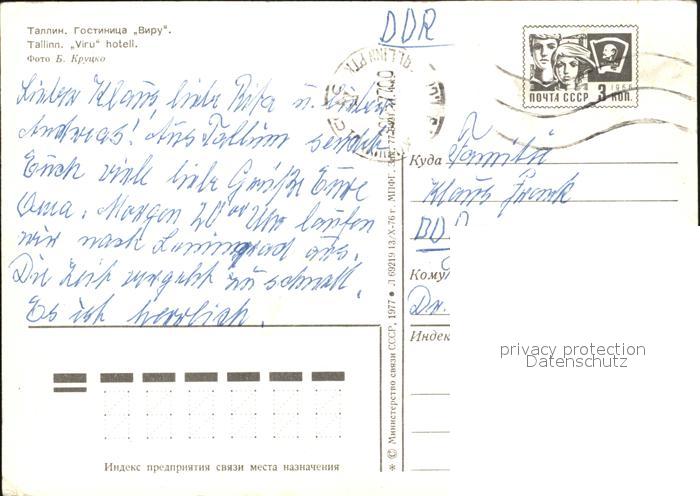 Таллин. Гостиница „Виру".
Tallinn. „Viru" hotell.
Фото Б. Круцко
DDR
ПОЧТА СССР 3 КОП.
1966
Lieber Klaus, liebe Rita u. lieber
Andreas! Aus Tallinn sendet
Euch viele liebe Grüße Eure
Oma. Morgen 20 00 Uhr laufen
wir nach Leningrad aus.
Die Zeit vergeht zu schnell.
Es ist herrlich.
Куда Familie
Klaus Frank
Кому
Dr.
Индек
* © Министерство связи СССР, 1977 • Л 69219 13/X-76 г. МПФГ.
privacy protection
Datenschutz
Индекс предприятия связи места назначения